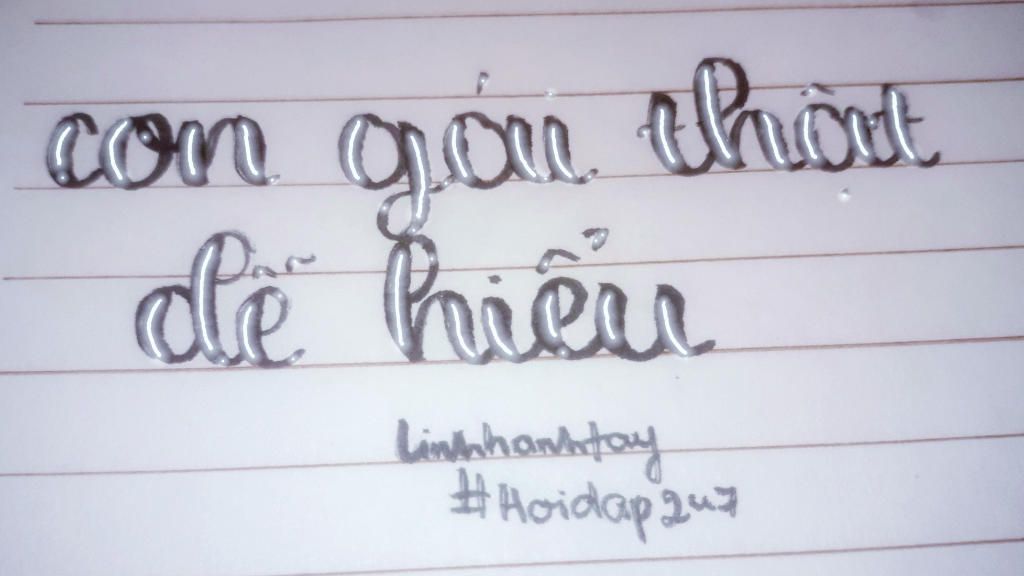 con gái thật
dễ hiểu
Linhnhanhtay
#Hoidap247